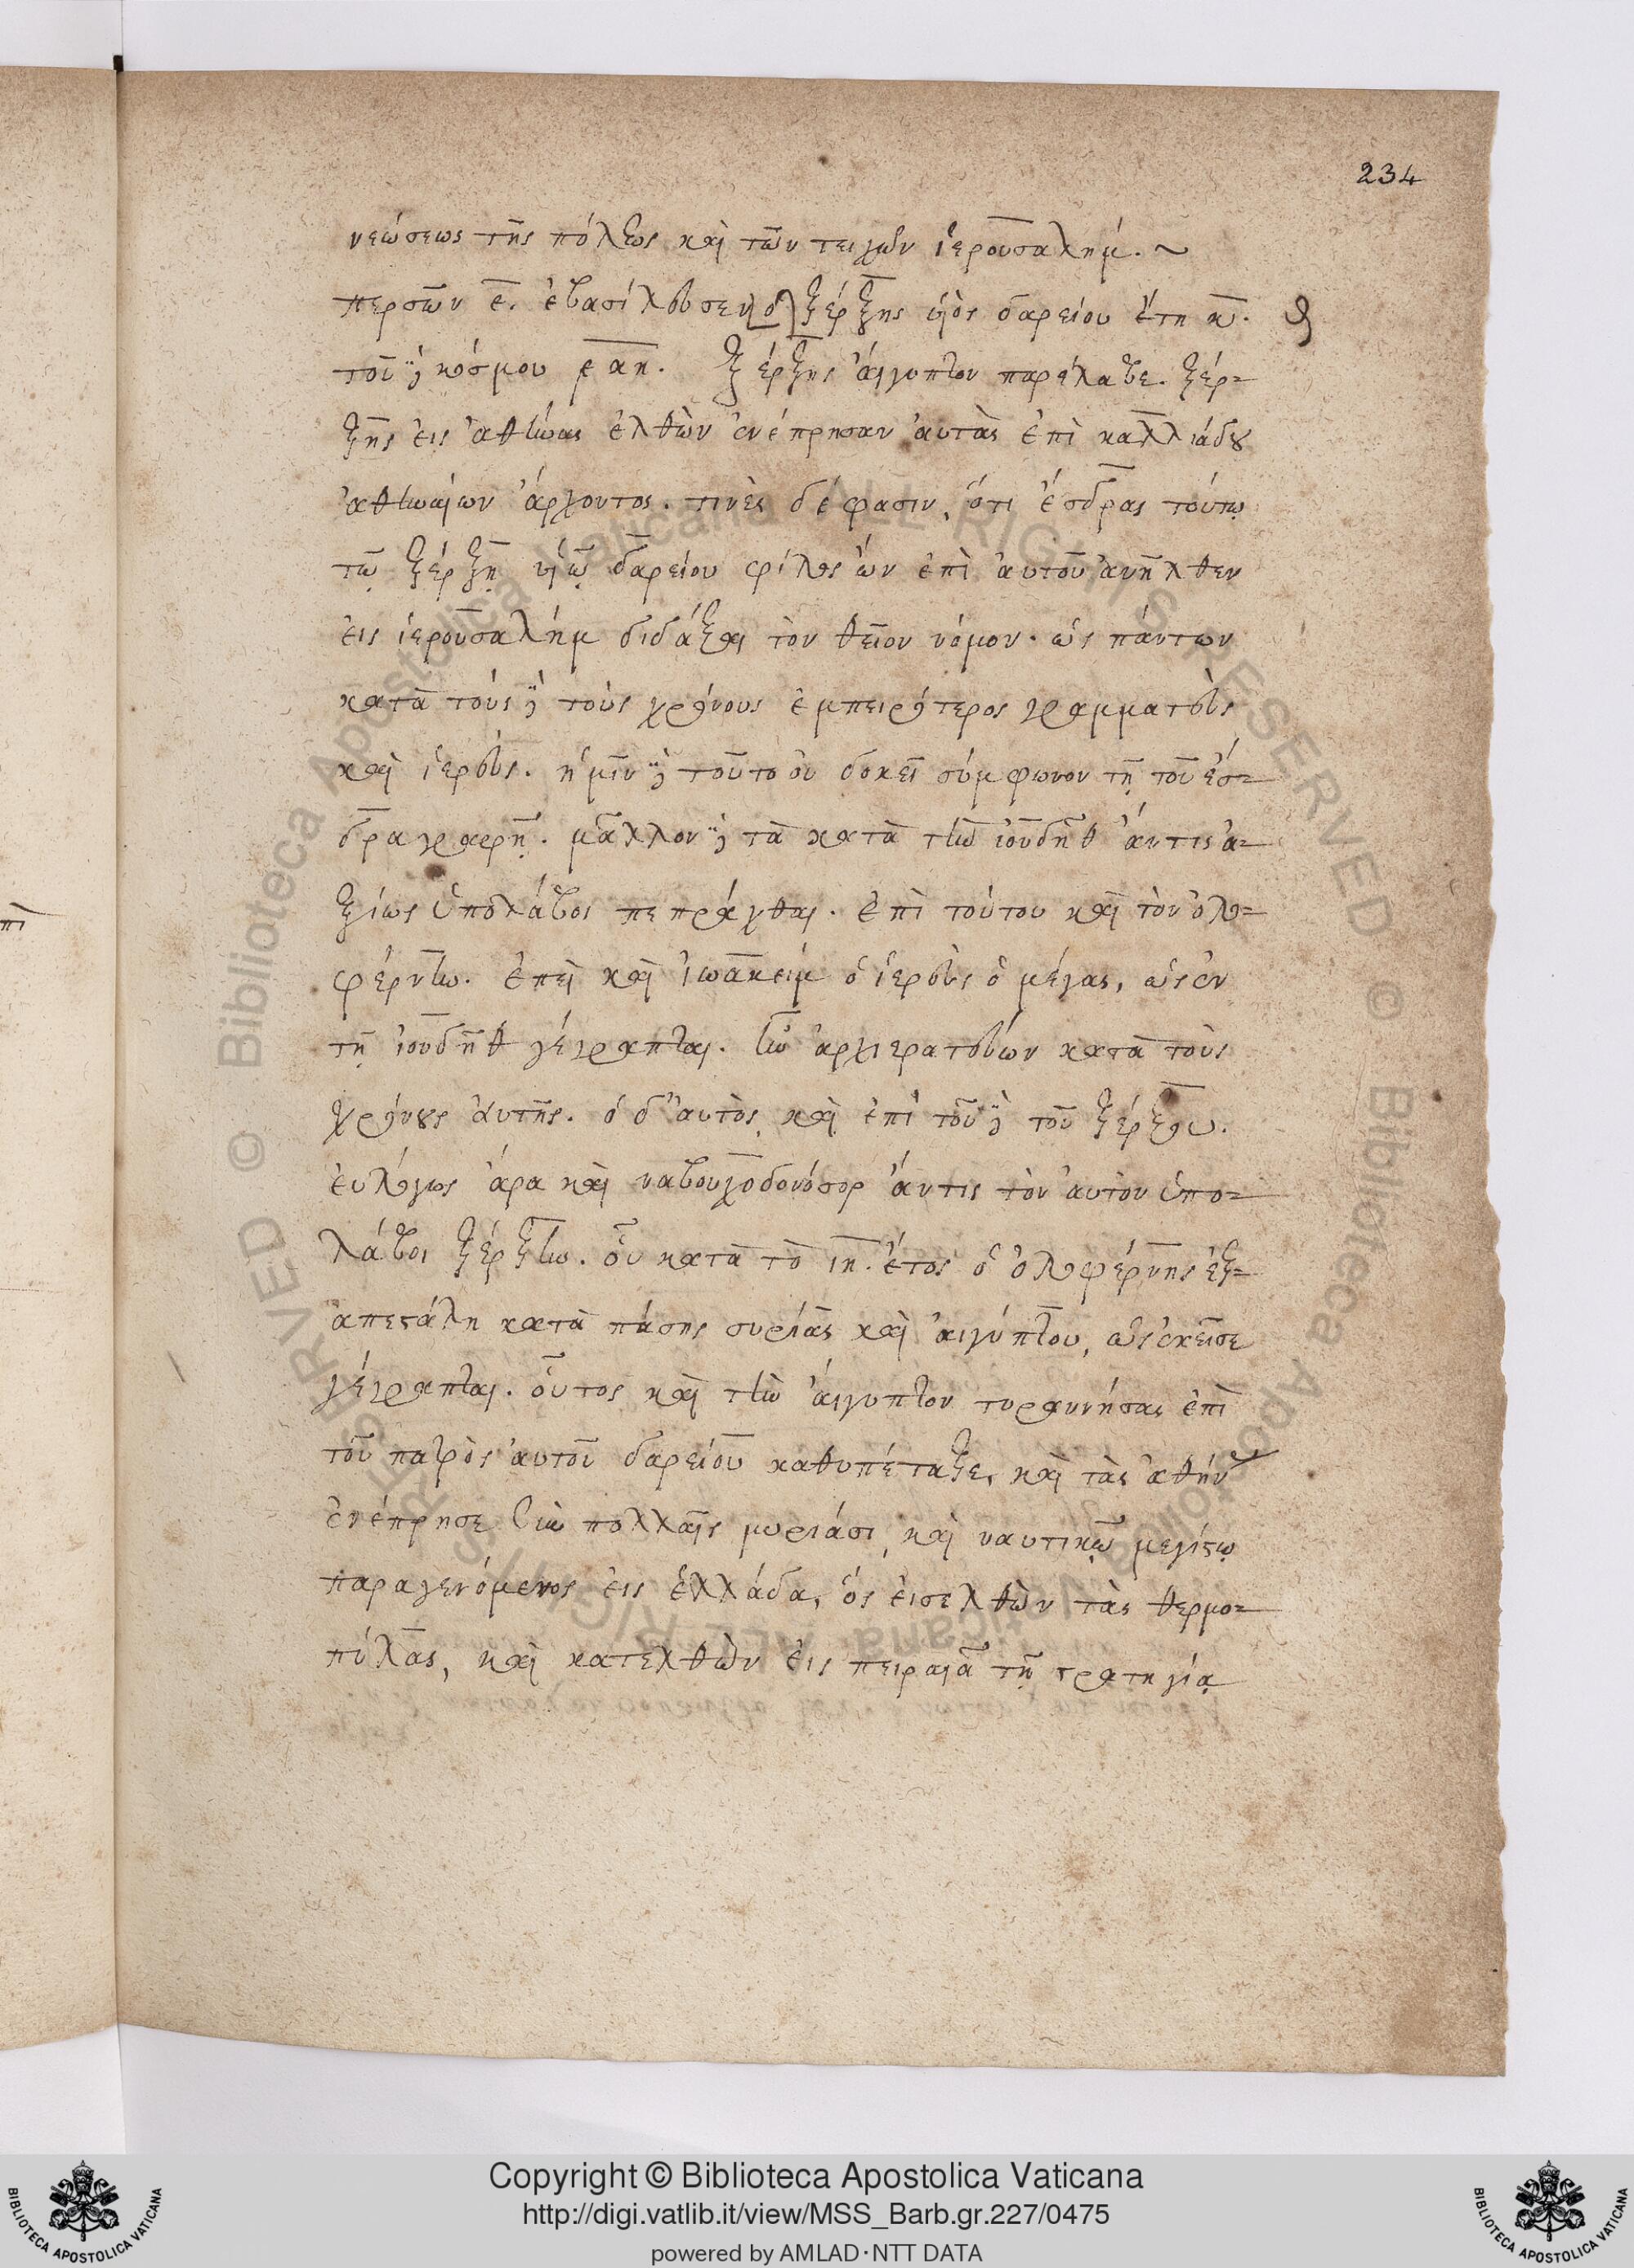 234
νεώσεως τῆς πόλεως καὶ τῶν τειχῶν ἱερουσαλήμ. ~
περσῶν ε. ἐβασίλευσεν ὁ ξέρξης υἱὸς δαρείου ἔτη κ.
τοῦ δὲ κόσμου
ξέρξης αἴγυπτον παρέλαβε. ξέρ-
ξης εἰς ἀθήνας ἐλθὼν ἐνέπρησαν αὐτὰς ἐπὶ καλλιάδου
ἀθηναίων ἄρχοντος. τινὲς δέ φασιν, ὅτι ἔσδρας τούτω
τῷ ξέρξῃ υἱῷ δαρείου φίλος ὢν ἐπὶ αὐτοῦ ἀνῆλθεν
εἰς ἱερουσαλήμ διδάξαι τὸν θεῖον νόμον. ὡς πάντων
κατὰ τοὺς δὲ τοὺς χρόνους ἐμπειρότερος γραμματεὺς
καὶ ἱερεύς. ἡμῖν δὲ τοῦτο οὐ δοκεῖ σύμφωνον τῇ τοῦ ἔσ-
δρα γραφῇ. μᾶλλον δὲ τὰ κατὰ τὴν ἰουδὴθ ἄντις ἀ-
ξίως ὑπολάβοι πεπράχθαι. ἐπὶ τούτου καὶ τὸν ὀλο-
φέρνην. ἐπεὶ καὶ ἰωακεὶμ ὁ ἱερεὺς ὁ μέγας, ὡς ἐν
τῇ ἰουδὴθ γέγραπται. ἦν ἀρχιερατεύων κατὰ τοὺς
χρόνους αὐτῆς. ὁ δ' αὐτὸς καὶ ἐπὶ τοῦ δὲ τοῦ ξέρξου.
εὐλόγως ἄρα καὶ ναβουχοδονόσορ ἄντις τὸν αὐτὸν ὑπο-
λάβοι ξέρξην. οὗ κατὰ τὸ ιη. ἔτος ὁ ὀλοφέρνης ἐξ-
απεστάλη κατὰ πάσης συρίας καὶ αἰγύπτου, ὡς ἐκεῖσε
γέγραπται. οὗτος καὶ τὴν αἴγυπτον τυραννήσας ἐπὶ
τοῦ πατρὸς αὐτοῦ δαρείου καθυπέταξε, καὶ τὰς ἀθήν
ἐνέπρησε σὺν πολλαῖς μυριάσι, καὶ ναυτικῷ μεγίστῳ
παραγενόμενος εἰς ἑλλάδα, ὃς εἰσελθὼν τὰς θερμο-
πύλας, καὶ κατελθὼν εἰς πειραιᾶ τῇ στρατηγίᾳ
πὶ
© Biblioteca Apostolica Vaticana ALL RIGHTS RESERVED © Biblioteca Apostolica Vaticana ALL RIGHTS RESERVED
Copyright © Biblioteca Apostolica Vaticana
http://digi.vatlib.it/view/MSS_Barb.gr.227/0475
powered by AMLAD·NTT DATA
BIBLIOTECA APOSTOLICA VATICANA
BIBLIOTECA APOSTOLICA VATICANA